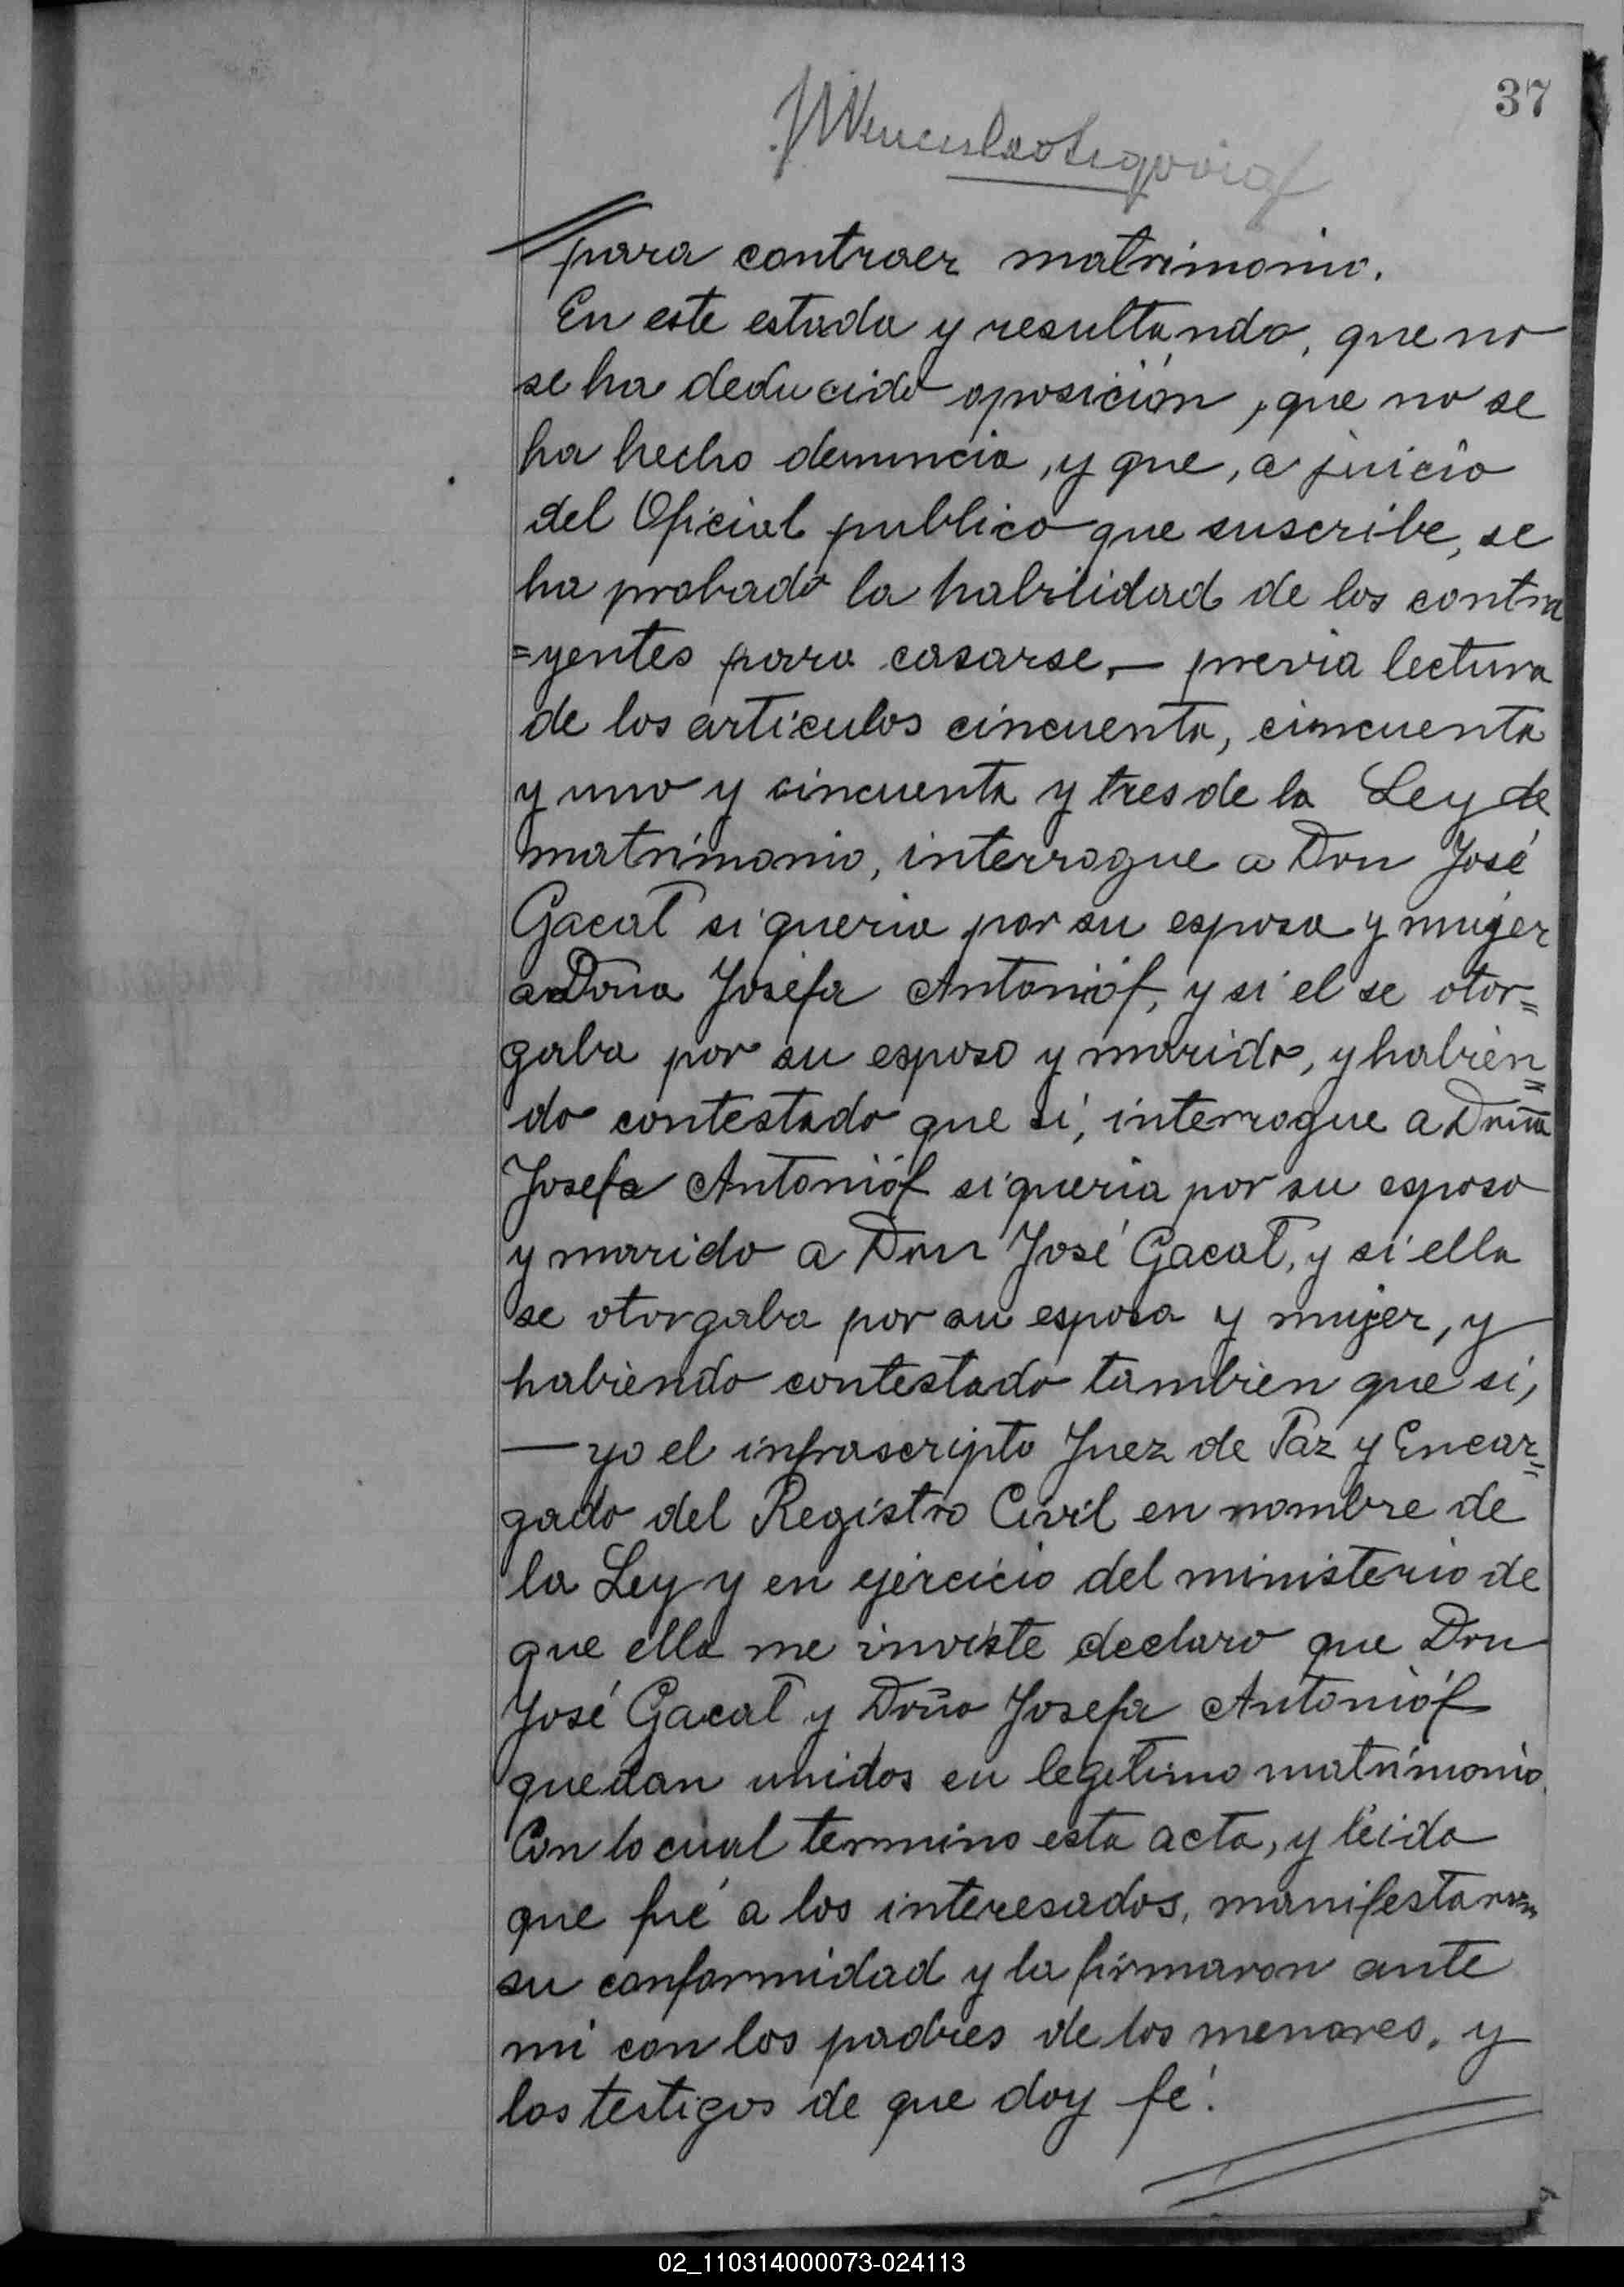 37
para contraer matrimonio.
En este estado y resultando, que no
se ha deducido oposición, que no se
ha hecho denuncia, y que, a juicio
del Oficial publico que suscribe, se
ha probado la habilidad de los contra
=yentes para casarse,— previa lectura
de los articulos cincuenta, cincuenta
y uno y cincuenta y tres de la Ley de
matrimonio, interrogue a Don José
Gacat si queria por su esposa y mujer
a Doña Josefa Antonióf, y si el se otor=
gaba por su esposo y marido, y habien=
do contestado que si, interrogue a Doña
Josefa Antonióf si queria por su esposo
y marido a Don José Gacat, y si ella
se otorgaba por su esposa y mujer, y
habiendo contestado tambien que si,
— yo el infrascripto Juez de Paz y Encar=
gado del Registro Civil en nombre de
la Ley y en ejercicio del ministerio de
que ella me inviste declaro que Don
José Gacat y Doña Josefa Antonióf
quedan unidos en legitimo matrimonio.
Con lo cual termino esta acta, y leida
que fué a los interesados, manifestaron
su conformidad y la firmaron ante
mi con los padres de los menores, y
los testigos de que doy fé.
02_110314000073-024113